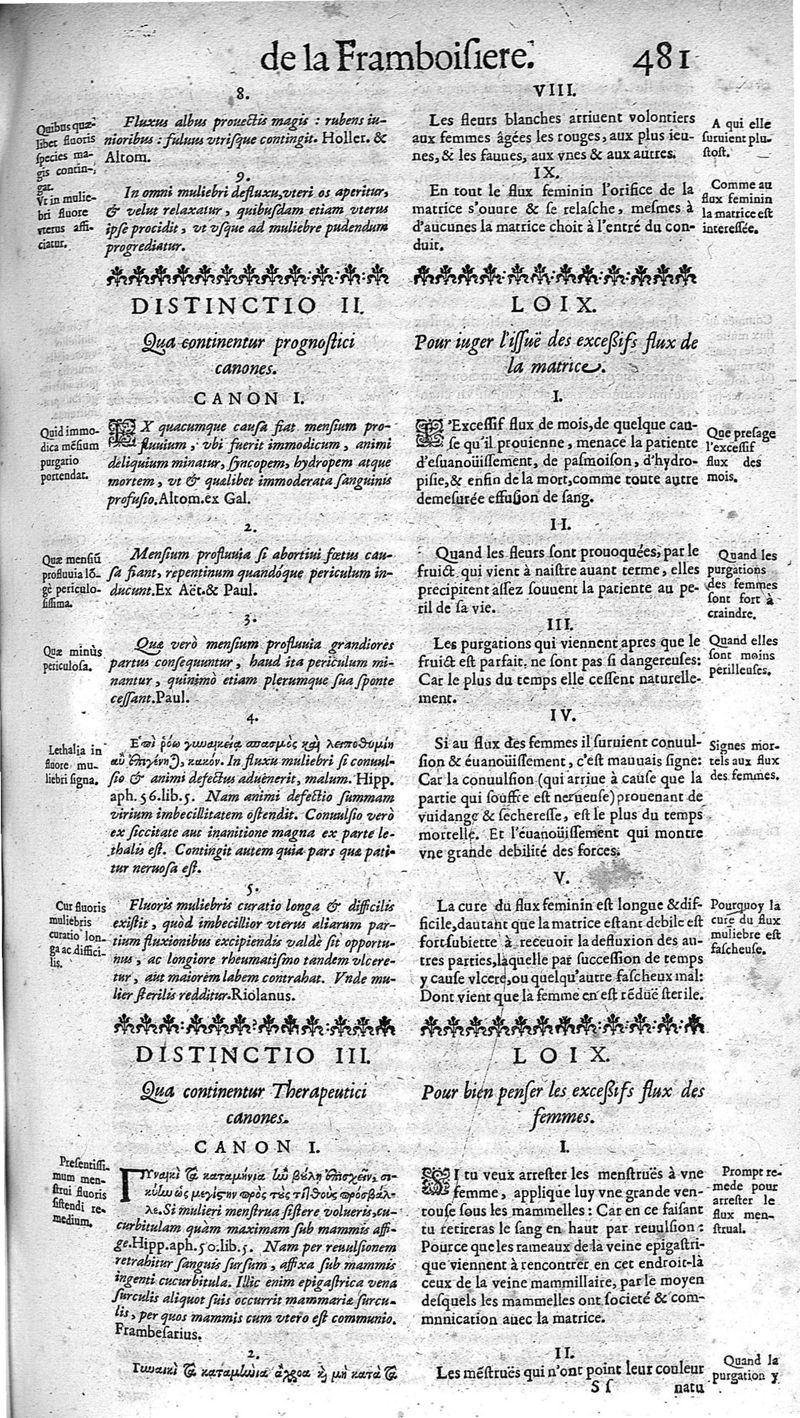 de la Framboiſiere. 481
8.
Quibus quæ-
libet fluoris
ſpecies ma-
gis contin-
gat.
Fluxus albus prouectis magis : rubens iu-
nioribus : fuluus vtriſque contingit. Holler. &
Altom.
9.
Vt in mulie-
bri fluore
vterus affi-
ciatur.
In omni muliebri defluxu, vteri os aperitur,
& velut relaxatur, quibuſdam etiam vterus
ipſe procidit, vt vſque ad muliebre pudendum
progrediatur.
DISTINCTIO II.
Qua continentur prognoſtici
canones.
CANON I.
Quid immo-
dica mēſium
purgatio
portendat.
EX quacumque cauſa fiat menſium pro-
fluuium, vbi fuerit immodicum, animi
deliquium minatur, ſyncopem, hydropem atque
mortem, vt & qualibet immoderata ſanguinis
profuſio. Altom. ex Gal.
2.
Quæ menſiū
profluuia lō-
gè periculo-
ſiſſima.
Menſium profluuia ſi abortiui fœtus cau-
ſa fiant, repentinum quandóque periculum in-
ducunt. Ex Aët. & Paul.
3.
Quæ minùs
periculoſa.
Quæ verò menſium profluuia grandiores
partus conſequuntur, haud ita periculum mi-
nantur, quinimò etiam plerumque ſua ſponte
ceſſant. Paul.
4.
Lethalia in
fluore mu-
liebri ſigna.
Ἐπὶ ῥόῳ γυναικείῳ σπασμὸς καὶ λειποθυμίη
ἢν ἐπιγένηται, κακόν. In fluxu muliebri ſi conuul-
ſio & animi defectus aduenerit, malum. Hipp.
aph. 56. lib. 5. Nam animi defectio ſummam
virium imbecillitatem oſtendit. Conuulſio verò
ex ſiccitate aut inanitione magna ex parte le-
thalis eſt. Contingit autem quia pars qua pati-
tur neruoſa eſt.
5.
Cur fluoris
muliebris
curatio lon-
ga ac diffici-
lis.
Fluoris muliebris curatio longa & difficilis
exiſtit, quòd imbecillior vterus aliarum par-
tium fluxionibus excipiendis valdè ſit opportu-
nus, ac longiore rheumatiſmo tandem vlcere-
tur, aut maiorem labem contrahat. Vnde mu-
lier ſterilis redditur. Riolanus.
DISTINCTIO III.
Qua continentur Therapeutici
canones.
CANON I.
Preſentiſſi-
mum men-
ſtrui fluoris
ſiſtendi re-
medium.
ΓΥναικὶ τὰ καταμήνια ἢν βούλῃ ἐπισχεῖν, σι-
κύην ὡς μεγίστην πρὸς τοὺς τιτθοὺς πρόσβαλ-
λε. Si mulieri menſtrua ſiſtere volueris, cu-
curbitulam quàm maximam ſub mammis affi-
ge. Hipp. aph. 50. lib. 5. Nam per reuulſionem
retrahitur ſanguis ſurſum, affixa ſub mammis
ingenti cucurbitula. Illic enim epigaſtrica vena
ſurculis aliquot ſuis occurrit mammariæ ſurcu-
lis, per quos mammis cum vtero eſt communio.
Frambeſarius.
2.
Γυναικὶ τὰ καταμήνια ἄχροα καὶ μὴ κατὰ τὰ
VIII.
Les fleurs blanches arriuent volontiers
aux femmes âgées les rouges, aux plus ieu-
nes, & les fauues, aux vnes & aux autres.
A qui elle
ſuruient plu-
ſtoſt.
IX.
En tout le flux feminin l'orifice de la
matrice s'ouure & ſe relaſche, meſmes à
d'aucunes la matrice choit à l'entré du con-
duit.
Comme au
flux feminin
la matrice eſt
intereſſée.
LOIX.
Pour iuger l'iſſuë des exceſſifs flux de
la matrice.
I.
L'Exceſſif flux de mois, de quelque cau-
ſe qu'il prouienne, menace la patiente
d'eſuanoüiſſement, de paſmoiſon, d'hydro-
piſie, & enfin de la mort, comme toute autre
demeſurée effuſion de ſang.
Que preſage
l'exceſſif
flux des
mois.
II.
Quand les fleurs ſont prouoquées, par le
fruict qui vient à naiſtre auant terme, elles
precipitent aſſez ſouuent la patiente au pe-
ril de ſa vie.
Quand les
purgations
des femmes
ſont fort à
craindre.
III.
Les purgations qui viennent apres que le
fruict eſt parfait, ne ſont pas ſi dangereuſes:
Car le plus du temps elle ceſſent naturelle-
ment.
Quand elles
ſont moins
perilleuſes.
IV.
Si au flux des femmes il ſuruient conuul-
ſion & éuanoüiſſement, c'eſt mauuais ſigne:
Car la conuulſion (qui arriue à cauſe que la
partie qui ſouffre eſt nerueuſe) prouenant de
vuidange & ſechereſſe, eſt le plus du temps
mortelle. Et l'éuanoüiſſement qui montre
vne grande debilité des forces.
Signes mor-
tels aux flux
des femmes.
V.
La cure du flux feminin eſt longue & dif-
ficile, dautant que la matrice eſtant debile eſt
fort ſubiette à receuoir la defluxion des au-
tres parties, laquelle par ſucceſſion de temps
y cauſe vlcere, ou quelqu'autre faſcheux mal:
Dont vient que la femme en eſt réduë ſterile.
Pourquoy la
cure du flux
muliebre eſt
faſcheuſe.
LOIX.
Pour bien penſer les exceſſifs flux des
femmes.
I.
SI tu veux arreſter les menſtruës à vne
femme, applique luy vne grande ven-
touſe ſous les mammelles: Car en ce faiſant
tu retireras le ſang en haut par reuulſion:
Pource que les rameaux de la veine epigaſtri-
que viennent à rencontrer en cet endroit-là
ceux de la veine mammillaire, par le moyen
deſquels les mammelles ont ſocieté & com-
mnnication auec la matrice.
Prompt re-
mede pour
arreſter le
flux men-
ſtrual.
II.
Les menſtruës qui n'ont point leur couleur
Quand la
purgation y
S ſ natu